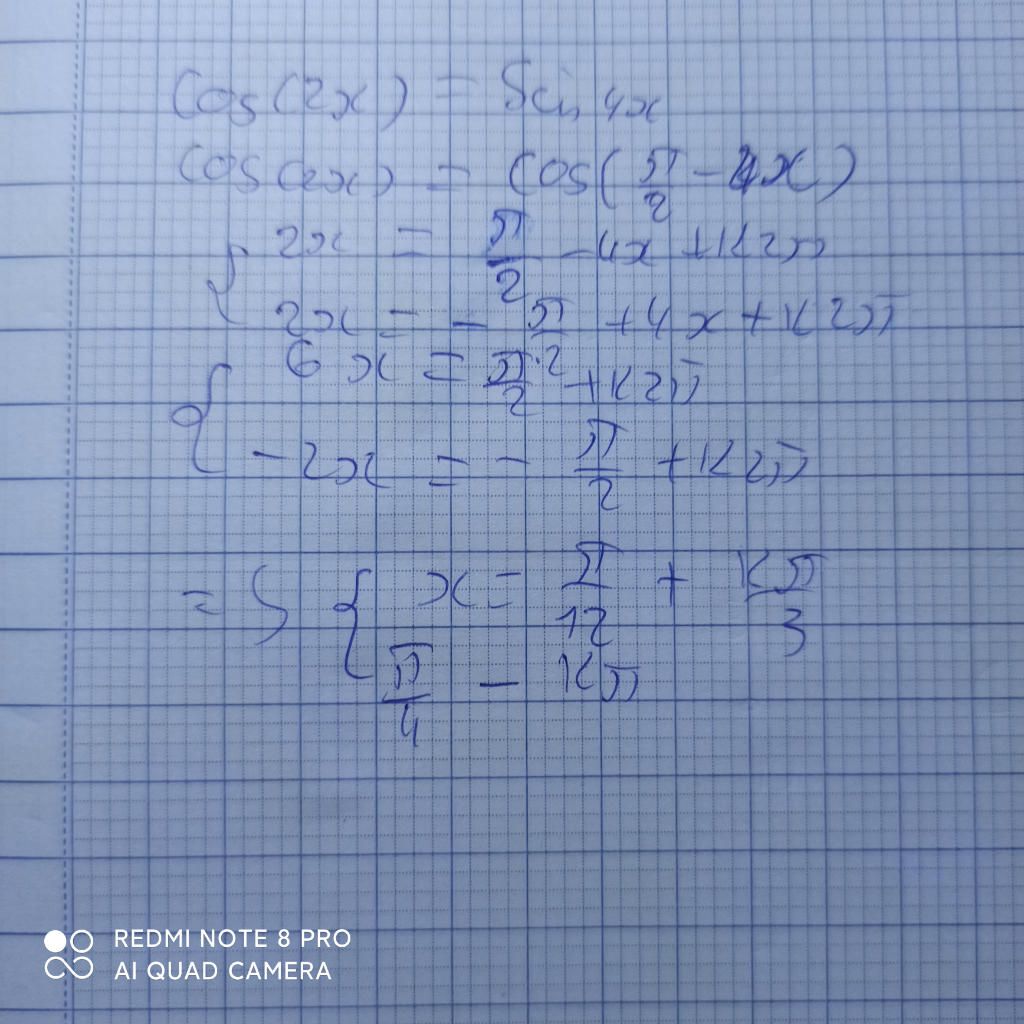 cos(2x) = Sin 4x
cos(2x) = cos(π/2 - 4x)
{ 2x = π/2 - 4x + K2π
2x = - π/2 + 4x + K2π
{ 6x = π/2 + K2π
-2x = - π/2 + K2π
= S { x = π/12 + Kπ/3
π/4 - Kπ
REDMI NOTE 8 PRO
AI QUAD CAMERA